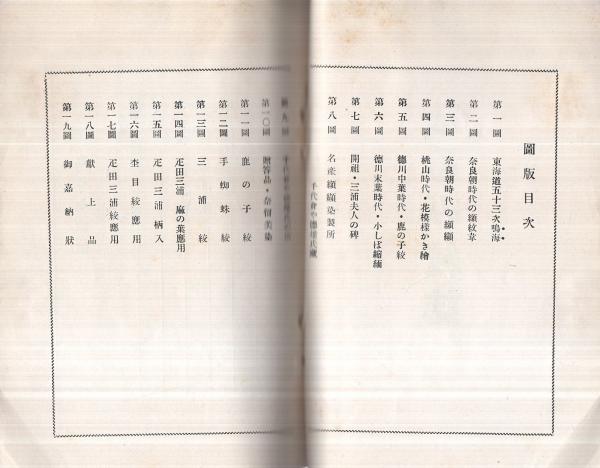 圖版目次
第一圖 東海道五十三次鳴海
第二圖 奈良朝時代の纐纹韋
第三圖 奈良朝時代の纐纈
第四圖 桃山時代・花模様かき繪
第五圖 德川中葉時代・鹿の子絞
第六圖 德川末葉時代・小しぼ縮緬
第七圖 開祖・三浦夫人の碑
第八圖 名産纐纈染製所
第九圖
第一〇圖 贈答品・奈留美染
第一一圖 鹿の子絞
第一二圖 手蜘蛛絞
第一三圖 三浦絞
第一四圖 疋田三浦麻の葉應用
第一五圖 疋田三浦柄入
第一六圖 杢目絞應用
第一七圖 疋田三浦絞應用
第一八圖 獻上品
第一九圖 御嘉納狀